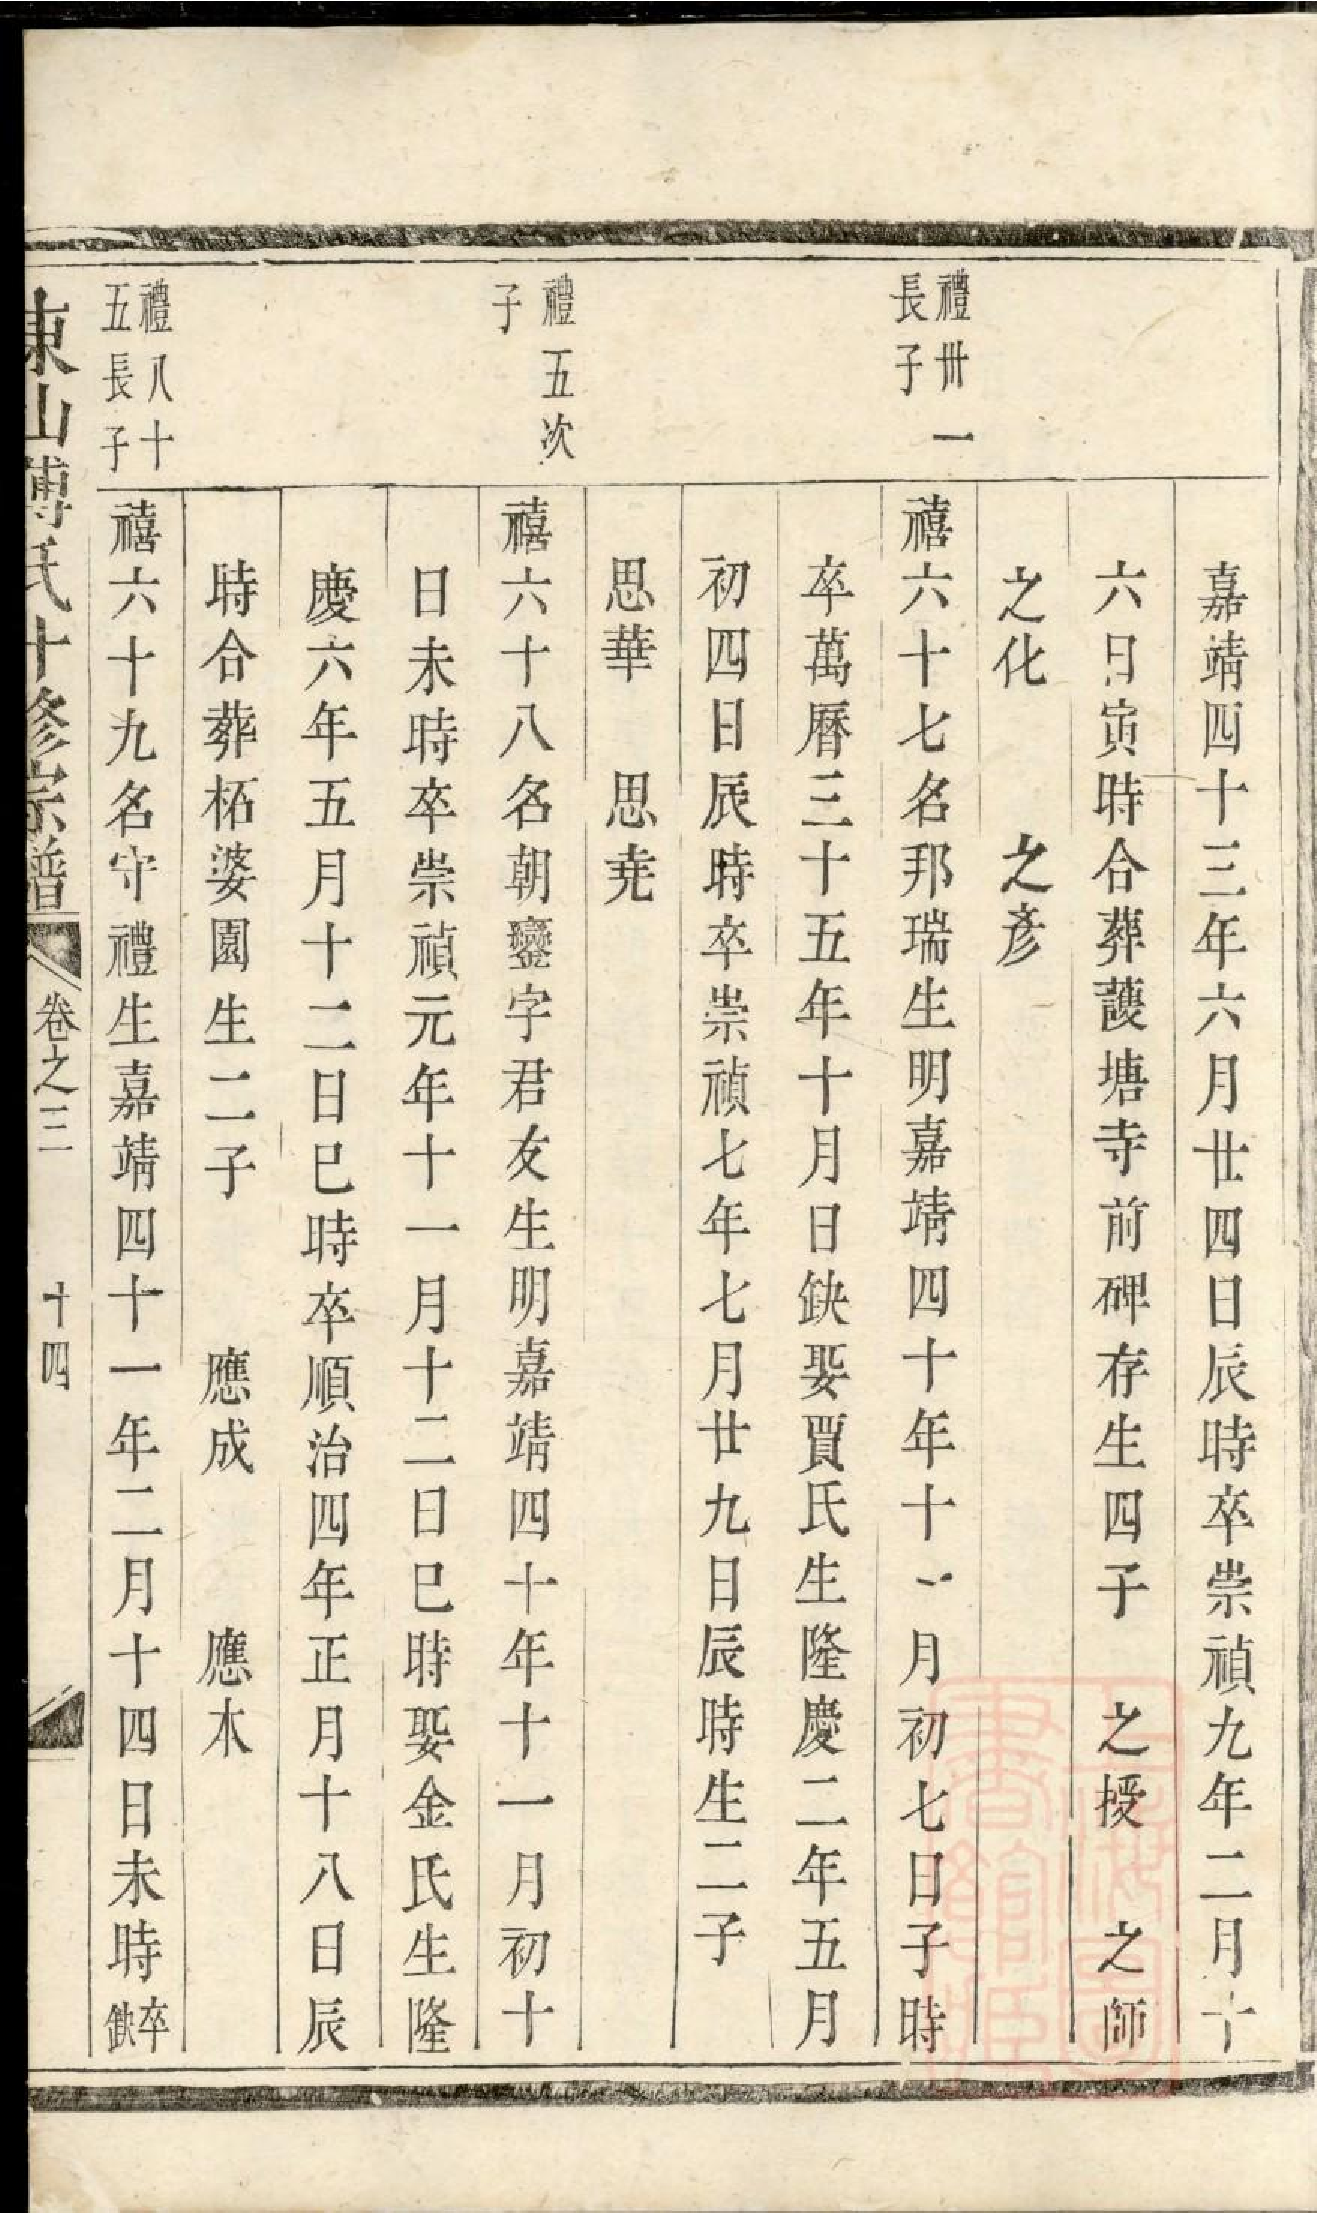 嘉靖四十三年六月廿四日辰時卒崇禎九年二月十
六日寅時合葬護塘寺前碑存生四子 之授 之師
之化 之彥
禮卅一
長子
禧六十七名邦瑞生明嘉靖四十年十一月初七日子時
卒萬曆三十五年十月日缺娶賈氏生隆慶二年五月
初四日辰時卒崇禎七年七月廿九日辰時生二子
思華 思堯
禮五次
子
禧六十八名朝鑾字君友生明嘉靖四十年十一月初十
日未時卒崇禎元年十一月十二日巳時娶金氏生隆
慶六年五月十二日巳時卒順治四年正月十八日辰
時合葬柘婆園生二子 應成 應木
禮八十
五長子
禧六十九名守禮生嘉靖四十一年二月十四日未時卒缺
東山傅氏十修宗譜 卷之三 十四
上海圖書館藏